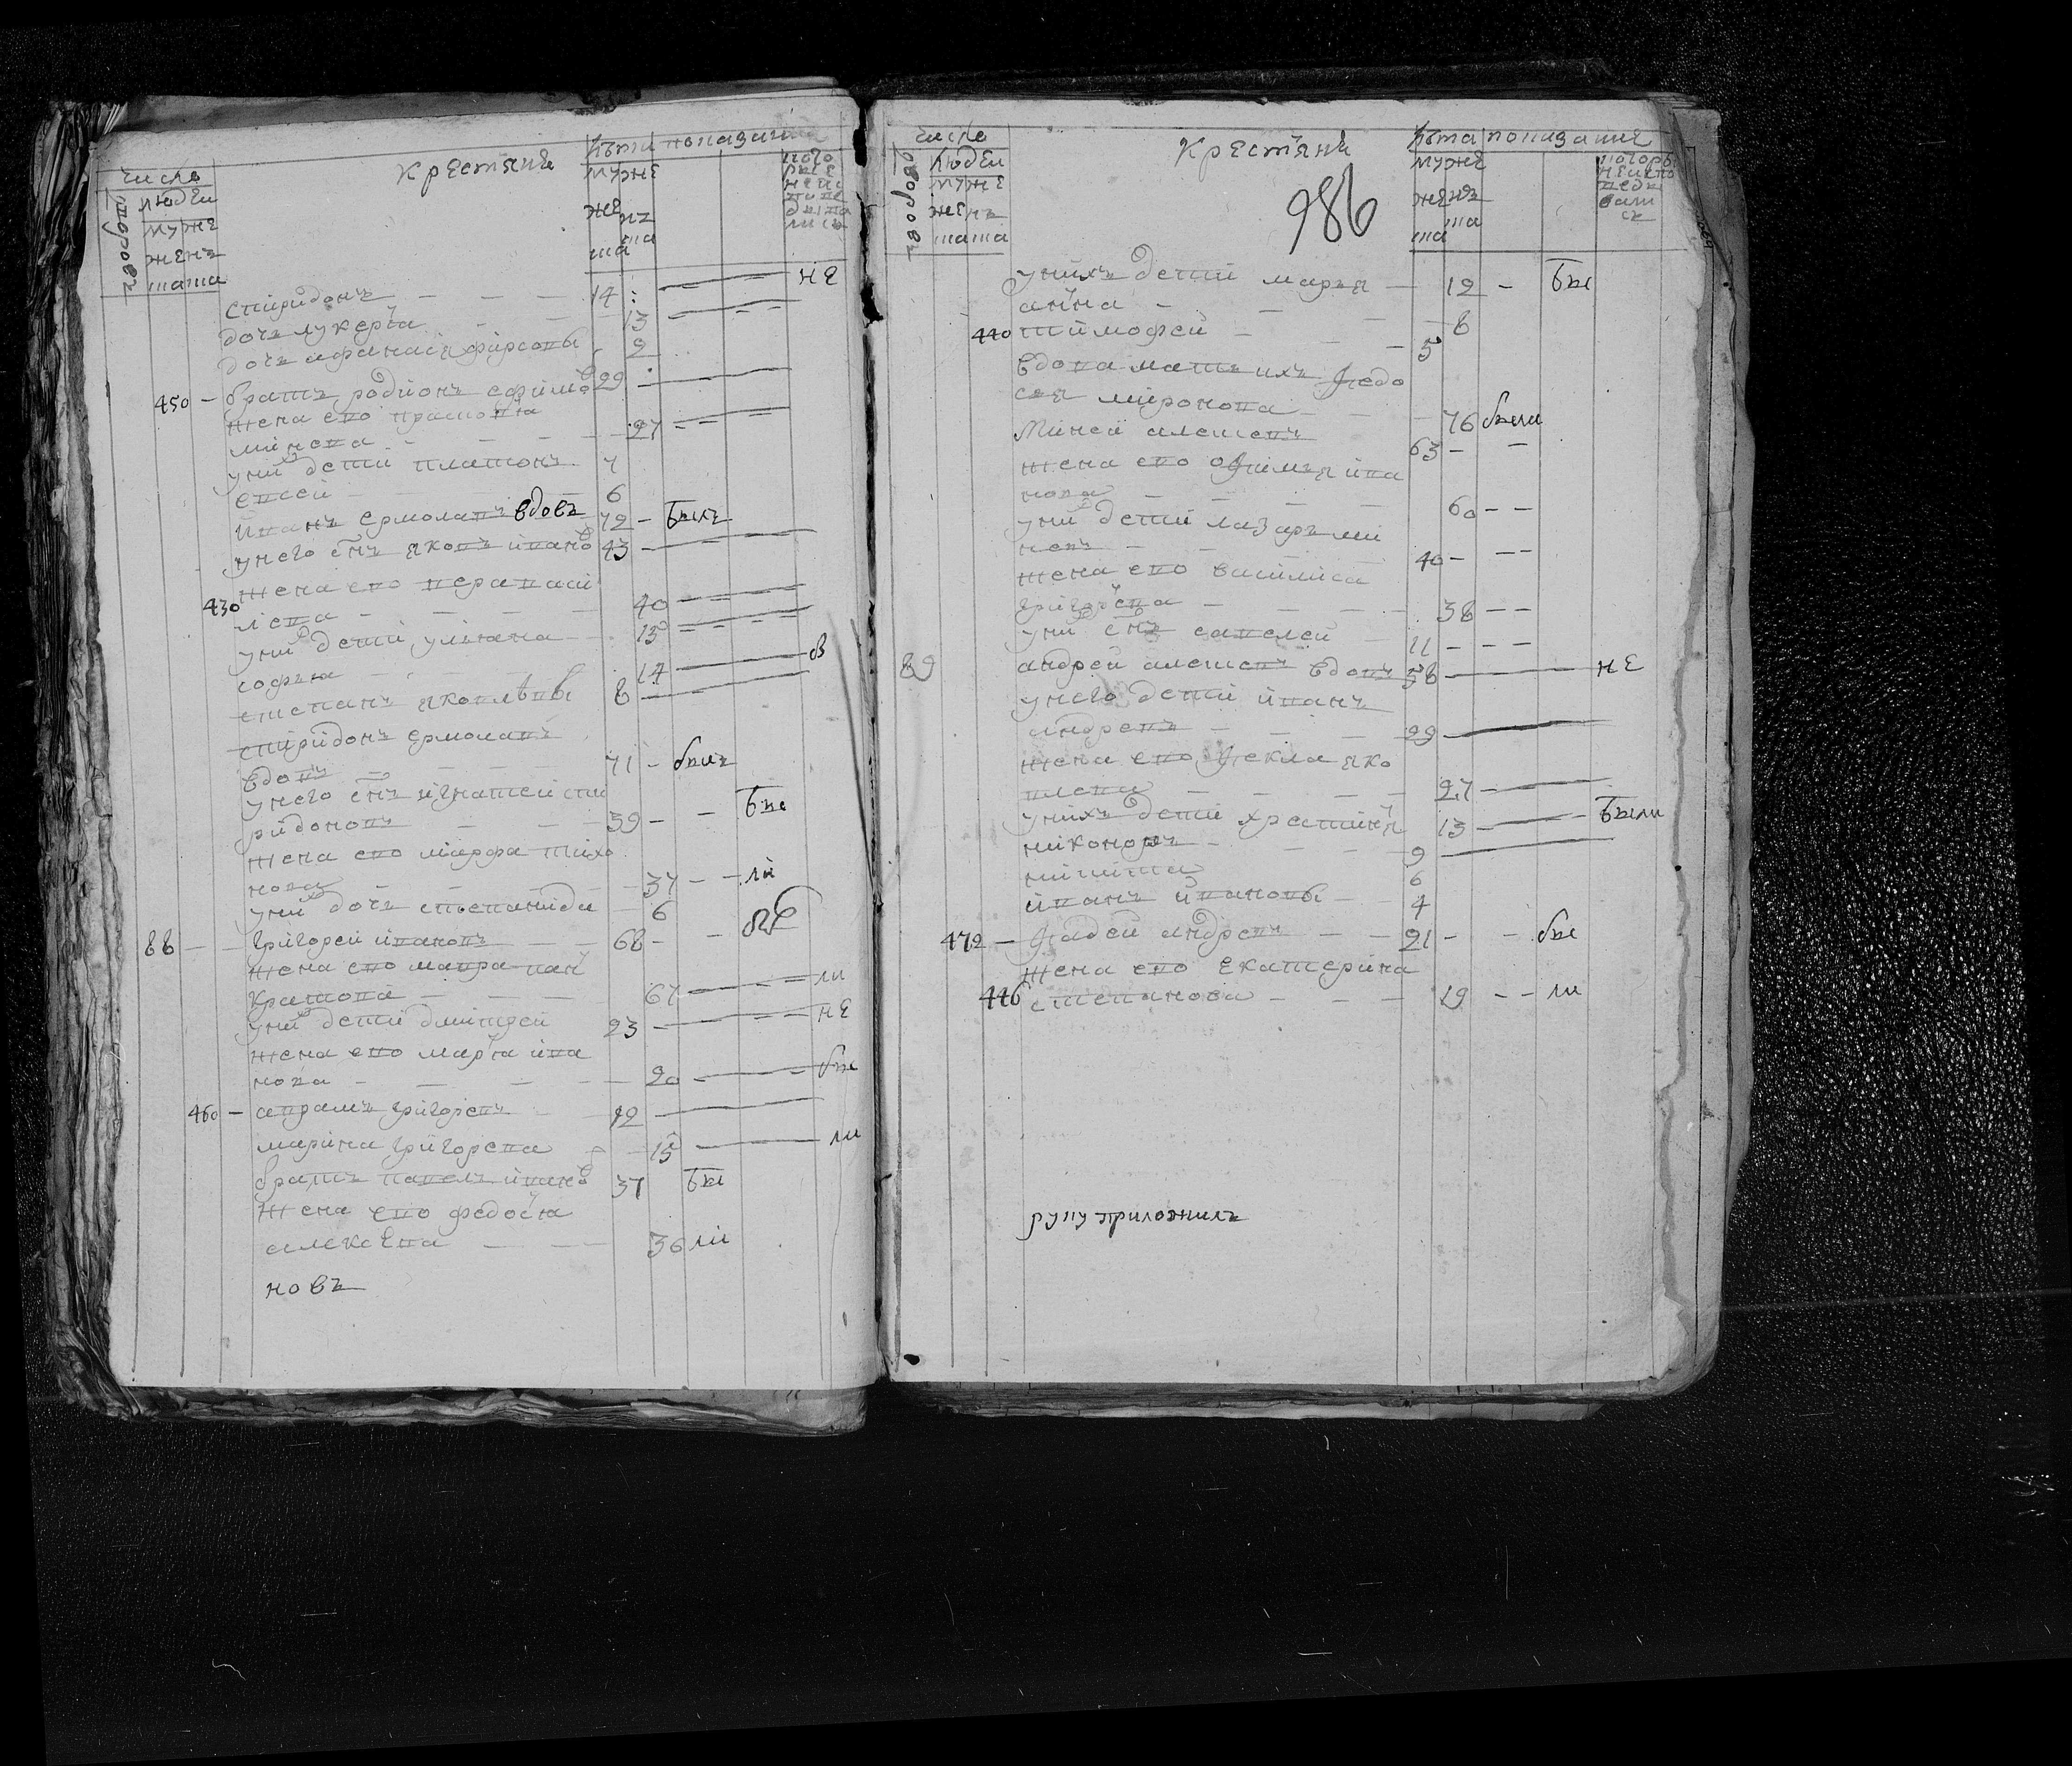 число
людеи
муже
женъ
дворовъ
крестяне
лѣта показания
муже
же нъ
ска ска
не
спиридонъ 14
дочь лукерья 13
дочь афанасия фирсовы 2
450 братъ родионъ ефимов 29
жена ево прасковья
минева 27
у них дети платонъ 7
евсей 6
иванъ ермолаевъ вдовъ 72 былъ
у него снъ яковъ иванов 43
430 жена ево
лева 40
у них дети ульяна 15
софья 14
степанъ яковлевы 8
спиридонъ ермолаевъ
вдовъ 71 былъ
у него снъ игнатей спи
ридоновъ 39 бы
жена ево марфа тихо
нова 37 ли
у них дочь степанида 6
88 григорей ивановъ 68
жена ево мавра пан
кратова 67 ли
у них дети дмитрей 23 не
жена ево марья ива
нова 20 бы
460 аврамъ григоревъ 12
марина григорева 15 ли
братъ павелъ иванов 37 бы
жена ево федосья
алексева 36 ли
новъ
число
людеи
муже
женъ
дворовъ
крестяне
986
лѣта показание
муже
женъ
у нихъ дети марья 12 бы
анна 8
440 тимофеи 5
вдова мать ихъ федо
сея миронова 76 были
миней алексевъ 63
жена ево офимья ива
нова 60
у них дети лазарь ми
невъ 40
жена ево василиса
григорева 38
у них снъ савелей 11
89 андрей алексевъ вдовъ 58 не
у него дети иванъ
андревъ 29
жена ево фекла яко
влева 27
у нихъ дети христинья 13 были
никоноръ 9
никита 6
иванъ ивановы 4
472 фадей андревъ 21 бы
жена ево екатерина
446 степанова 19 ли
руку приложилъ